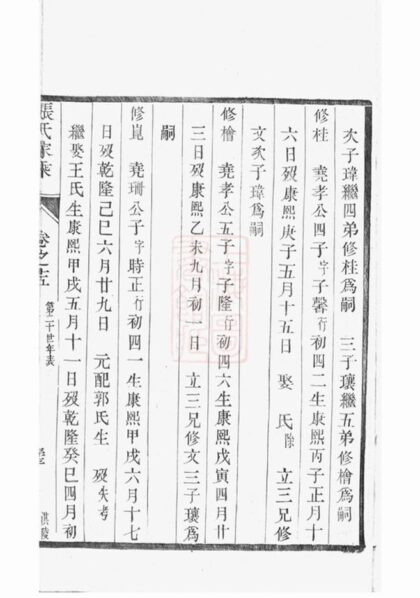 次子瑋繼四弟修桂爲嗣　三子瓌繼五弟修檜爲嗣
修桂　堯孝公四子字子馨行初四二生康熙丙子正月十
六日歿康熙庚子五月十五日　娶氏除　立三兄修
文次子瑋爲嗣
修檜　堯孝公五子字子隆行初四六生康熙戊寅四月廿
三日歿康熙乙未九月初一日　立三兄修文三子瓌爲
嗣
修崑　堯珊公子字時正行初四一生康熙甲戌六月十七
日歿乾隆己巳六月廿九日　元配郭氏生　歿失考
繼娶王氏生康熙甲戌五月十一日歿乾隆癸巳四月初
張氏家乘
卷之五
第二十世年表
淇陵